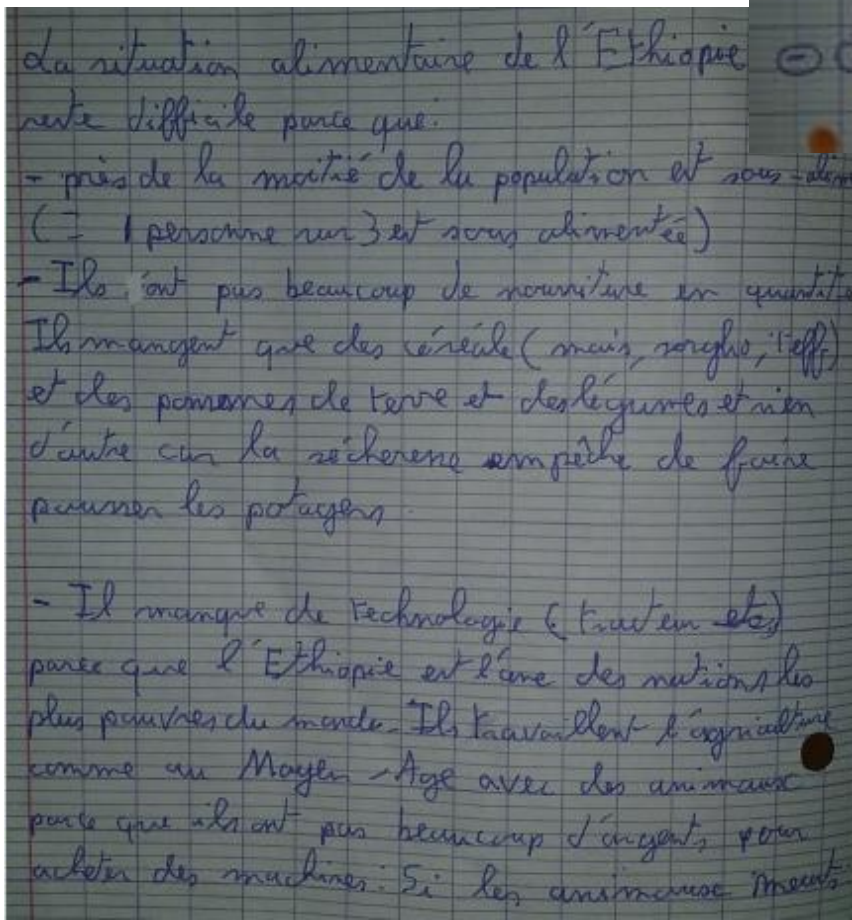 La situation alimentaire de l'Ethiopie
reste difficile parce que:
- près de la moitié de la population et sous-alim
(= 1 personne sur 3 et sous alimentée)
- Ils ont pas beaucoup de nourriture en quantité
Ils mangent que des céréale (maïs, sorgho, teff)
et des pommes de terre et des légumes et rien
d'autre car la sécheresse empêche de faire
pousser les potagers.
- Il manque de technologie (tracteur etc)
parce que l'Ethiopie est l'une des nations les
plus pauvres du monde. Ils travaillent l'agriculture
comme au Moyen-Age avec des animaux
parce que ils ont pas beaucoup d'argents pour
acheter des machines. Si les animaux meurt